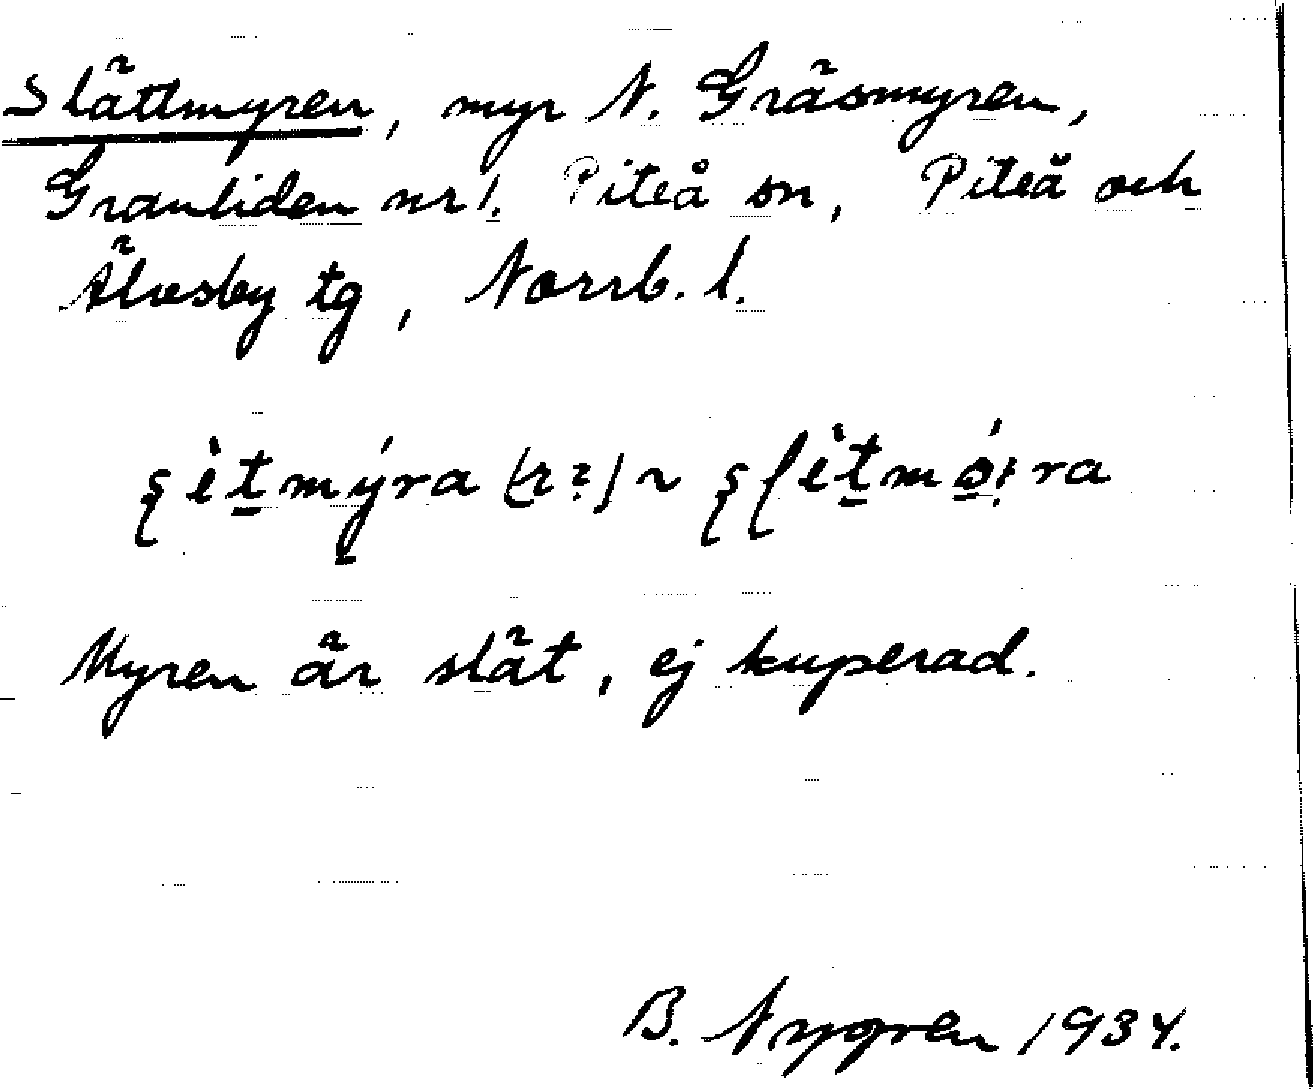 Slättmyren, myr N. Gräsmyren,
Granliden nr 1. Piteå sn, Piteå och
Älvsby tg, Norrb. l.
Myren är slät, ej kuperad.
B. Nygren 1934.